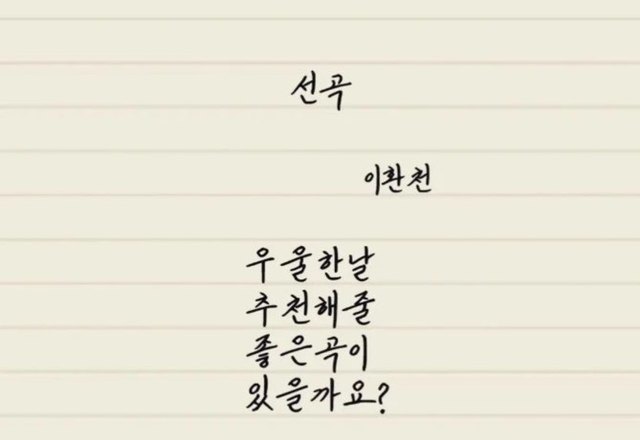 선곡
이환천
우울한날
추천해줄
좋은곡이
있을까요?